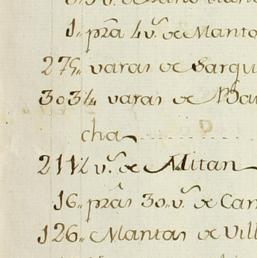 1,, pza 4 vs. de Manto
275,, varas de Sargu
303¼ varas de Ba
cha
211½ vs. de Mitan
16,, pzas 30,, vs. de Can
126,, Mantas de Vill